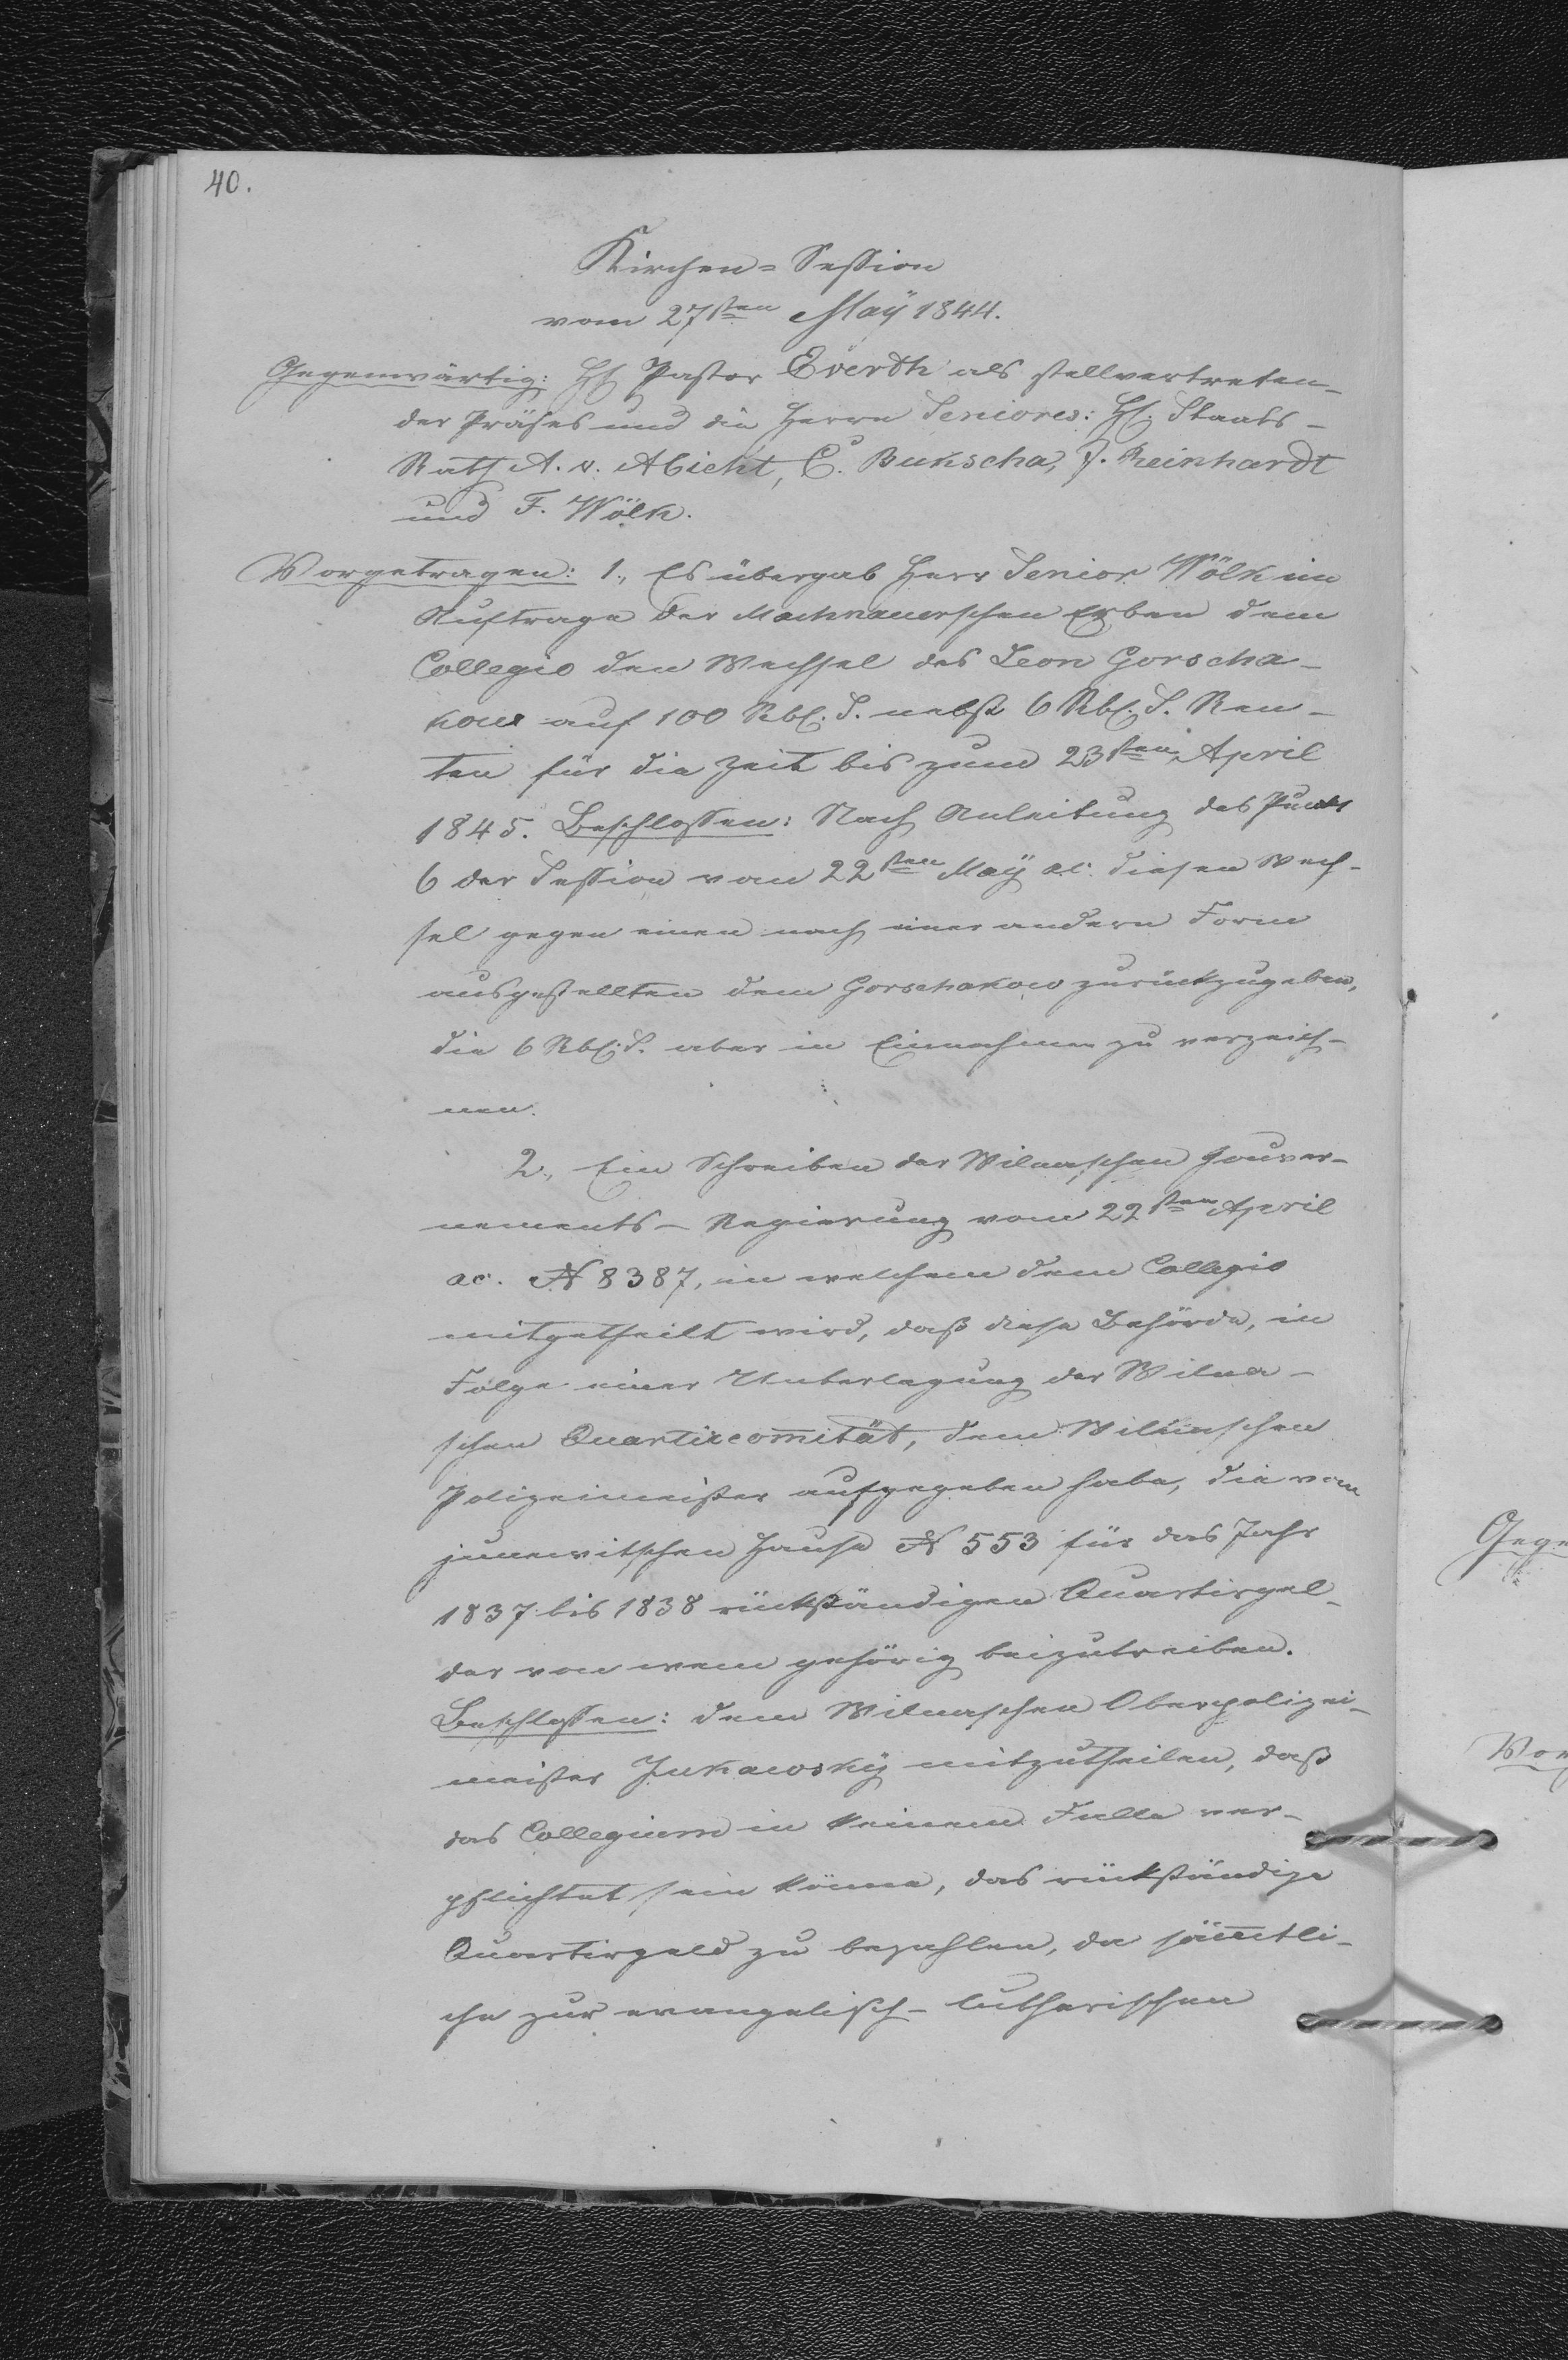 40.
Kirchen-Session
vom 27sten Maÿ 1844.
Gegenwärtig: H. Pastor Everth als stellvertreten-
der Präses und die Herrn Seniores: H. Staats-
Rath A. v. Abicht, C. Bukscha, J. Reinhardt
und F. Wölk.
Vorgetragen: 1., Es übergab Herr Senior Wölk im
Auftrage der Machnauerschen Erben dem
Collegio den Wechsel des Leon Gorscha-
kow auf 100 Rbl. S. nebst 6 Rbl. S. Ren-
ten für die Zeit bis zum 23sten April
1845. Beschlossen: Nach Anleitung des Punkts
6 der Session vom 22sten Maÿ ac. diesen Wech-
sel gegen einen nach einer andern Form
ausgestellten dem Gorschakow zurückzugeben,
die 6 Rbl. S. aber in Einnahme zu verzeich-
nen.
2., Ein Schreiben der Wilnaschen Gouver-
nements-Regierung vom 22sten April
ac. № 8387, in welchem dem Collegio
mitgetheilt wird, daß diese Behörde, in
Folge einer Unterlegung der Wilna-
schen Quartircom̅ität, dem Wilnaschen
Polizeimeister aufgegeben habe, die vom
Hause № 553 für das Jahr
1837 bis 1838 rückständigen Quartirgel-
der von wem gehörig beizutreiben.
Beschlossen: dem Wilnaschen Oberpolizei-
meister Jukawskÿ mitzutheilen, daß
das Collegium in keinem Falle ver-
pflichtet sein könne, das rückständige
Quartirgeld zu bezahlen, da säm̅tli-
che zur evangelisch-lutherischen
Gege
Vor